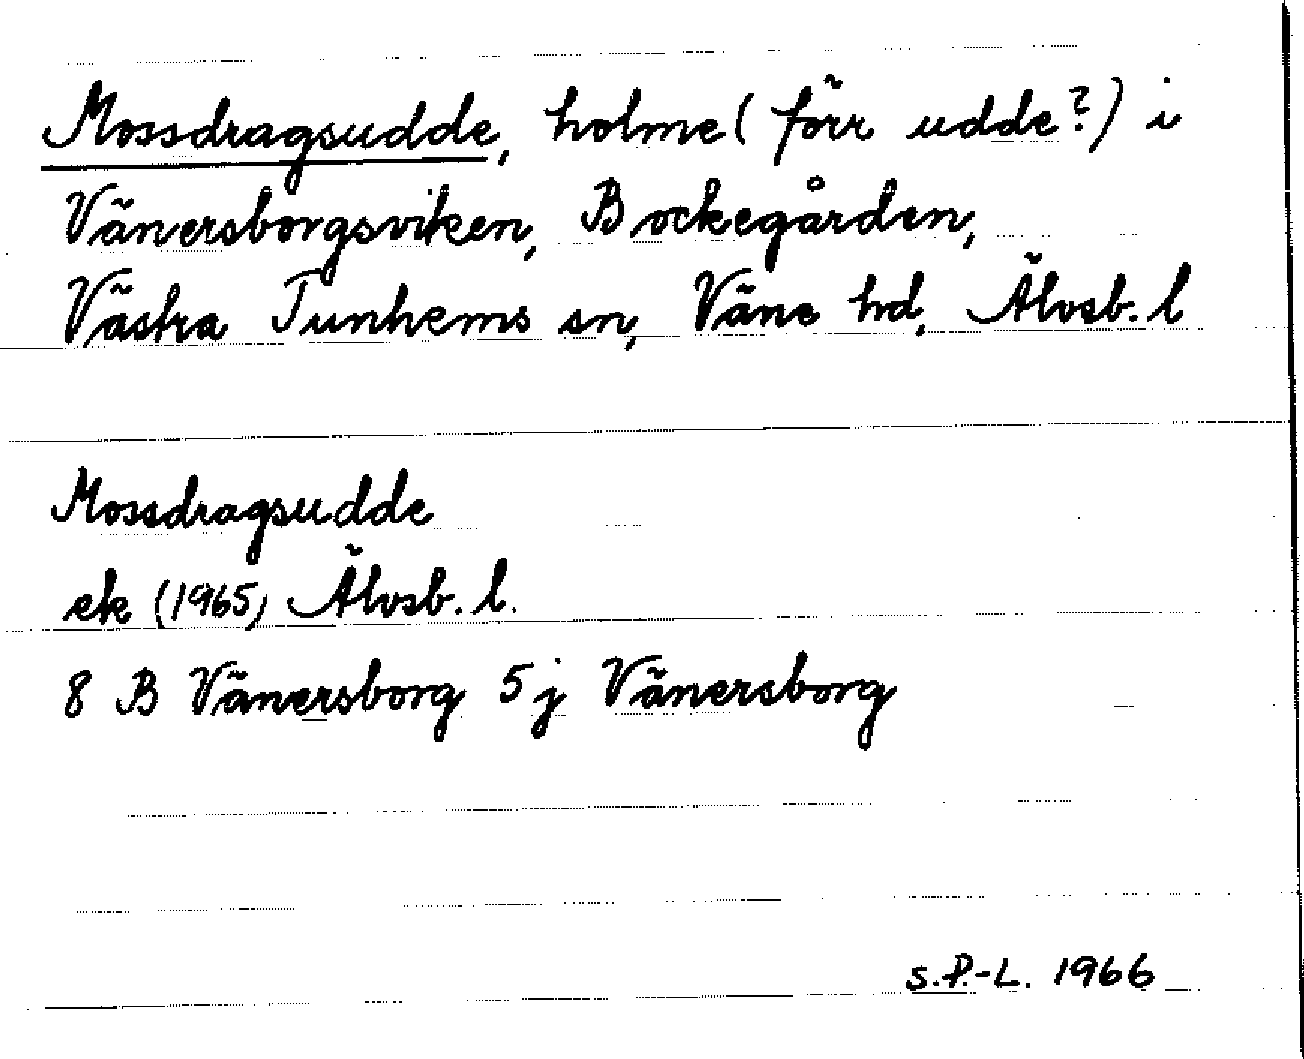 Mossdragsudde, holme (förr udde?) i
Vänersborgsviken, Bockegården,
Västra Tunhems sn, Väne hd, Älvsb. l
Mossdragsudde
ek (1965) Älvsb. l.
8 B Vänersborg 5 j Vänersborg
S.P.-L. 1966